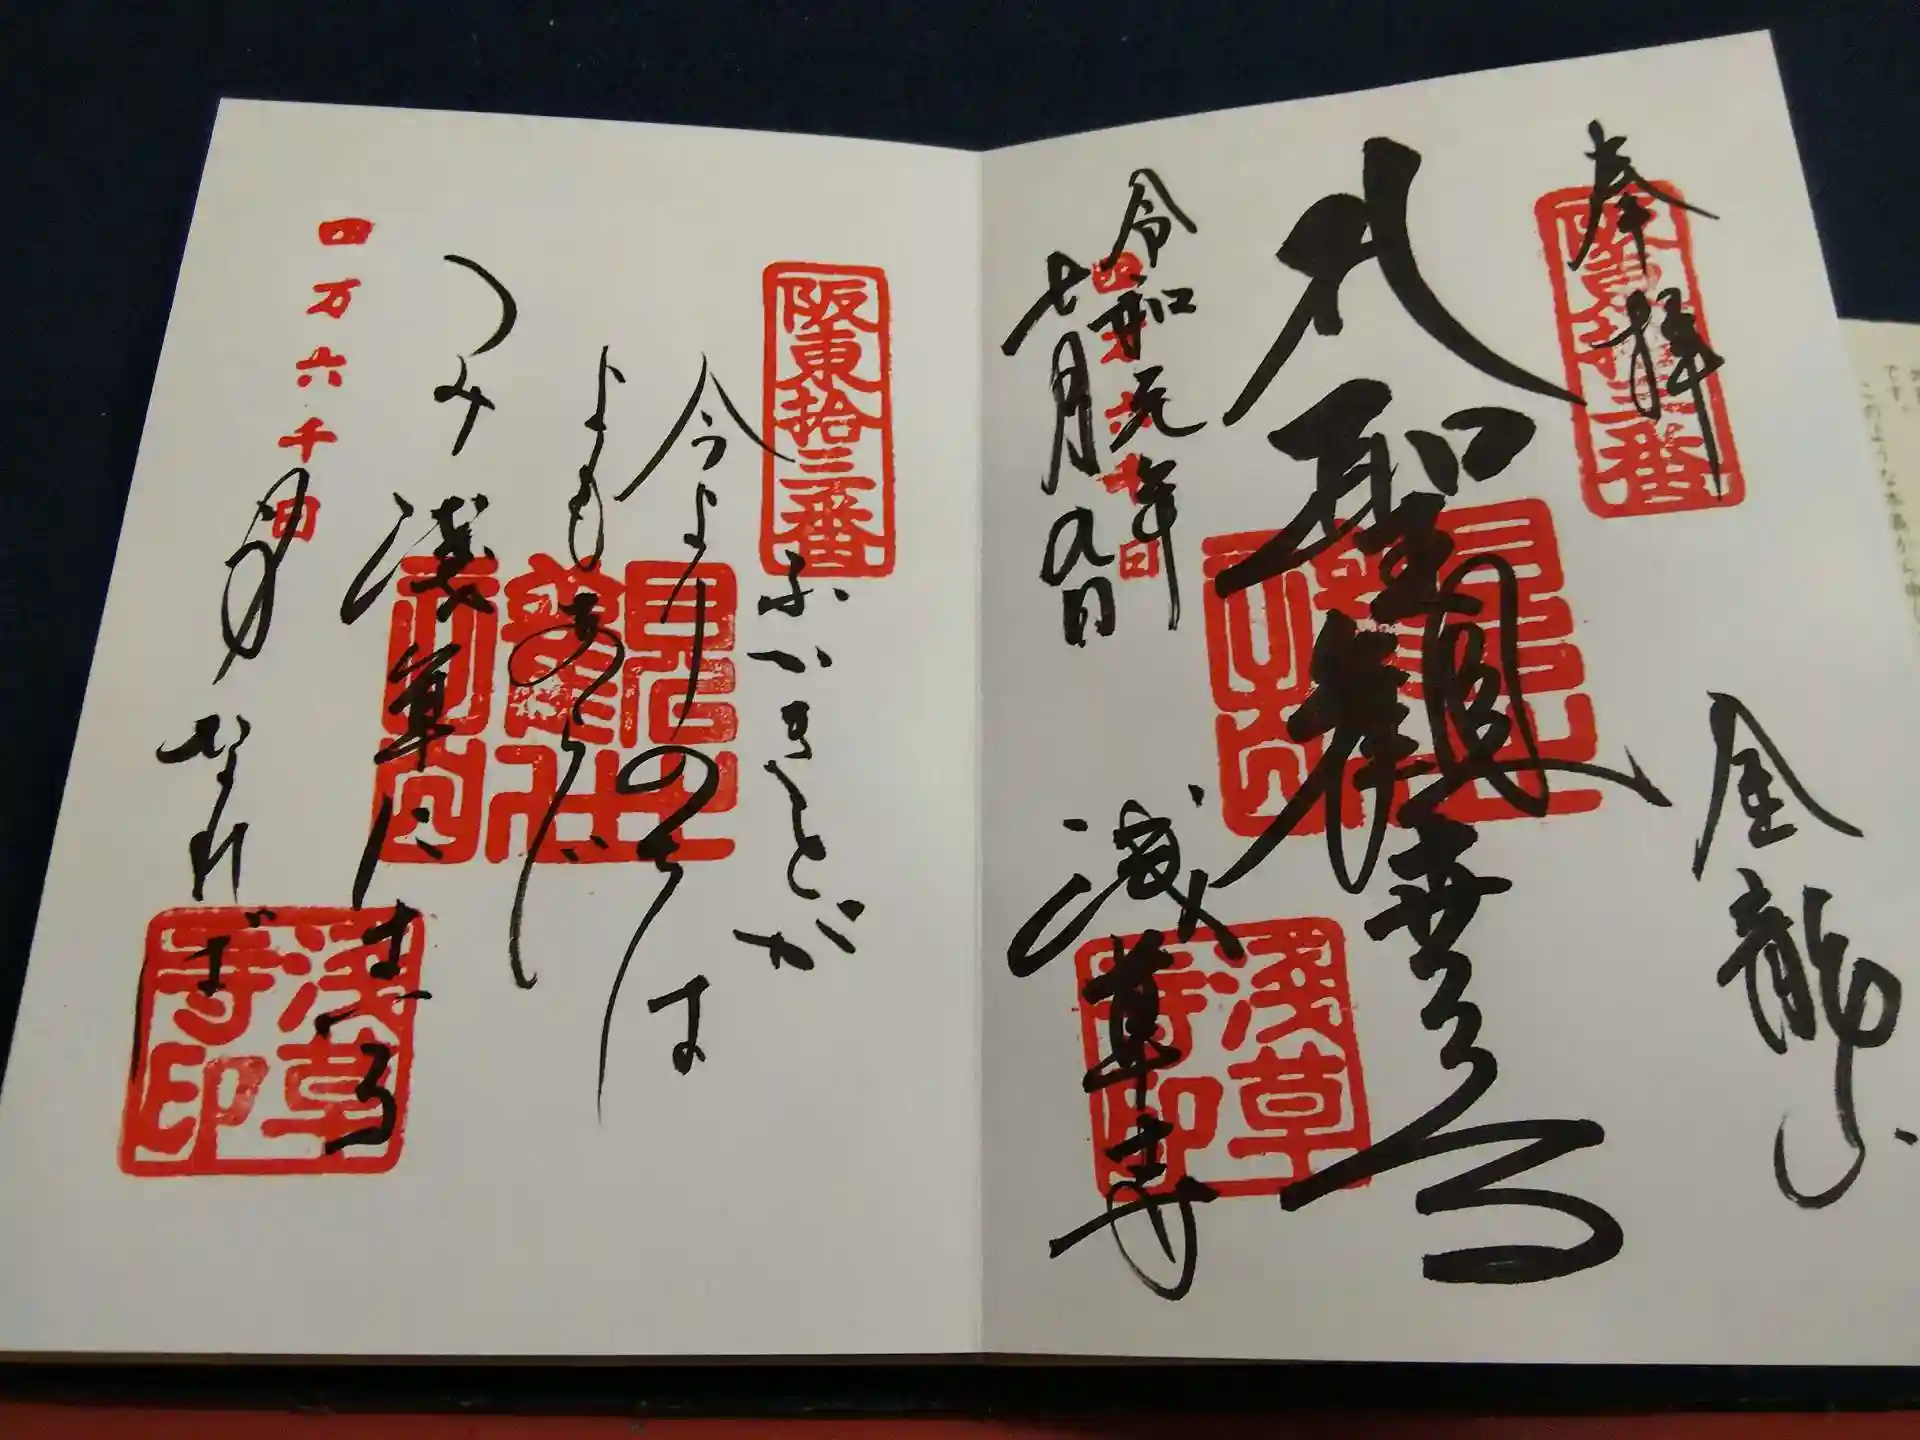 奉拝
阪東拾三番
金龍山
聖観世音
令和元年
七月九日
四万六千日
浅草寺
浅草寺印
阪東拾三番
ふかきとが
今よりのちは
よもあらじ
つみ浅草にまいる
身なれば
四万六千日
浅草寺印